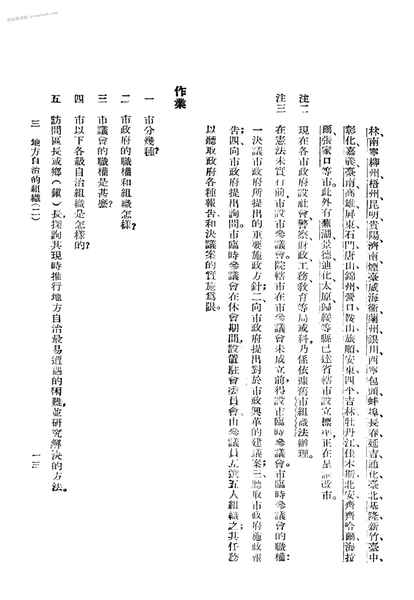 林、南寧、柳州、梧州、昆明、貴陽、濟南、煙臺、威海衞、蘭州、銀川、西寧、包頭、蚌埠、長春、延吉、通化、臺北、基隆、新竹、臺中、
彰化、嘉義、臺南、高雄、屏東、石門、唐山、錦州、營口、鞍山、旅順、安東、四平、吉林、牡丹江、佳木斯、北安、齊齊哈爾、海拉
爾、張家口等市。此外有蕪湖、景德、迪化、太原、歸綏等縣已達省轄市設立標準,正在呈請改市。
注二 現在各市政府設社會、警察、財政、工務、教育等局或科,乃係依據舊市組織法辦理。
注三 在憲法未實行前,市設市參議會。院轄市在市參議會未成立前,得設市臨時參議會。市臨時參議會的職權:
一決議市政府所提出的重要施政方針;二向市政府提出對於市政興革的建議案;三聽取市政府施政報
告;四向市政府提出詢問。市臨時參議會在休會期間,設置駐會委員會,由參議員互選五人組織之,其任務
以聽取政府各種報告和決議案的實施爲限。
作業
一 市分幾種?
二 市政府的職權和組織怎樣?
三 市議會的職權是甚麽?
四 市以下各級自治組織是怎樣的?
五 訪問區長或鄉(鎮)長,探詢其現時推行地方自治最易遭遇的困難,並研究解決的方法。
三 地方自治的組織(二)
一三